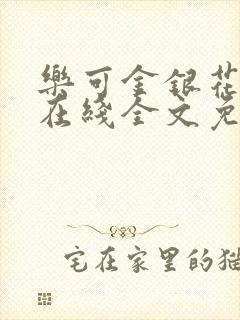 樂可金銀花
在綫全文免
宅在家里的猫